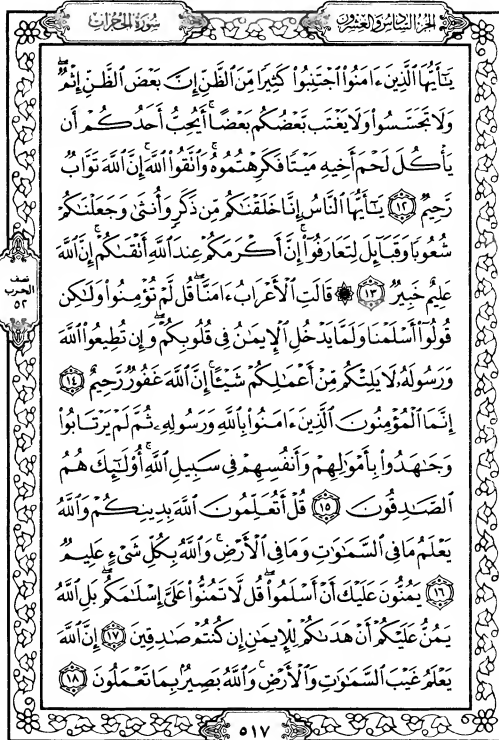 سُورَةُ الحُجُرَاتِ
الجُزْءُ السَّادِسُ وَالعِشْرُونَ
يَـٰٓأَيُّهَا ٱلَّذِينَ ءَامَنُوا۟ ٱجْتَنِبُوا۟ كَثِيرًا مِّنَ ٱلظَّنِّ إِنَّ بَعْضَ ٱلظَّنِّ إِثْمٌۖ
وَلَا تَجَسَّسُوا۟ وَلَا يَغْتَب بَّعْضُكُم بَعْضًاۚ أَيُحِبُّ أَحَدُكُمْ أَن
يَأْكُلَ لَحْمَ أَخِيهِ مَيْتًا فَكَرِهْتُمُوهُۚ وَٱتَّقُوا۟ ٱللَّهَۚ إِنَّ ٱللَّهَ تَوَّابٌ
رَّحِيمٌ ۝١٢ يَـٰٓأَيُّهَا ٱلنَّاسُ إِنَّا خَلَقْنَـٰكُم مِّن ذَكَرٍ وَأُنثَىٰ وَجَعَلْنَـٰكُمْ
شُعُوبًا وَقَبَآئِلَ لِتَعَارَفُوٓا۟ۚ إِنَّ أَكْرَمَكُمْ عِندَ ٱللَّهِ أَتْقَىٰكُمْۚ إِنَّ ٱللَّهَ
عَلِيمٌ خَبِيرٌ ۝١٣ ۞ قَالَتِ ٱلْأَعْرَابُ ءَامَنَّاۖ قُل لَّمْ تُؤْمِنُوا۟ وَلَـٰكِن
قُولُوٓا۟ أَسْلَمْنَا وَلَمَّا يَدْخُلِ ٱلْإِيمَـٰنُ فِى قُلُوبِكُمْۖ وَإِن تُطِيعُوا۟ ٱللَّهَ
وَرَسُولَهُۥ لَا يَلِتْكُم مِّنْ أَعْمَـٰلِكُمْ شَيْـًٔاۚ إِنَّ ٱللَّهَ غَفُورٌ رَّحِيمٌ ۝١٤
إِنَّمَا ٱلْمُؤْمِنُونَ ٱلَّذِينَ ءَامَنُوا۟ بِٱللَّهِ وَرَسُولِهِۦ ثُمَّ لَمْ يَرْتَابُوا۟
وَجَـٰهَدُوا۟ بِأَمْوَٰلِهِمْ وَأَنفُسِهِمْ فِى سَبِيلِ ٱللَّهِۚ أُو۟لَـٰٓئِكَ هُمُ
ٱلصَّـٰدِقُونَ ۝١٥ قُلْ أَتُعَلِّمُونَ ٱللَّهَ بِدِينِكُمْ وَٱللَّهُ
يَعْلَمُ مَا فِى ٱلسَّمَـٰوَٰتِ وَمَا فِى ٱلْأَرْضِۚ وَٱللَّهُ بِكُلِّ شَىْءٍ عَلِيمٌ
۝١٦ يَمُنُّونَ عَلَيْكَ أَنْ أَسْلَمُوا۟ۖ قُل لَّا تَمُنُّوا۟ عَلَىَّ إِسْلَـٰمَكُمۖ بَلِ ٱللَّهُ
يَمُنُّ عَلَيْكُمْ أَنْ هَدَىٰكُمْ لِلْإِيمَـٰنِ إِن كُنتُمْ صَـٰدِقِينَ ۝١٧ إِنَّ ٱللَّهَ
يَعْلَمُ غَيْبَ ٱلسَّمَـٰوَٰتِ وَٱلْأَرْضِۚ وَٱللَّهُ بَصِيرٌۢ بِمَا تَعْمَلُونَ ۝١٨
نصف
الحزب
٥٢
٥١٧